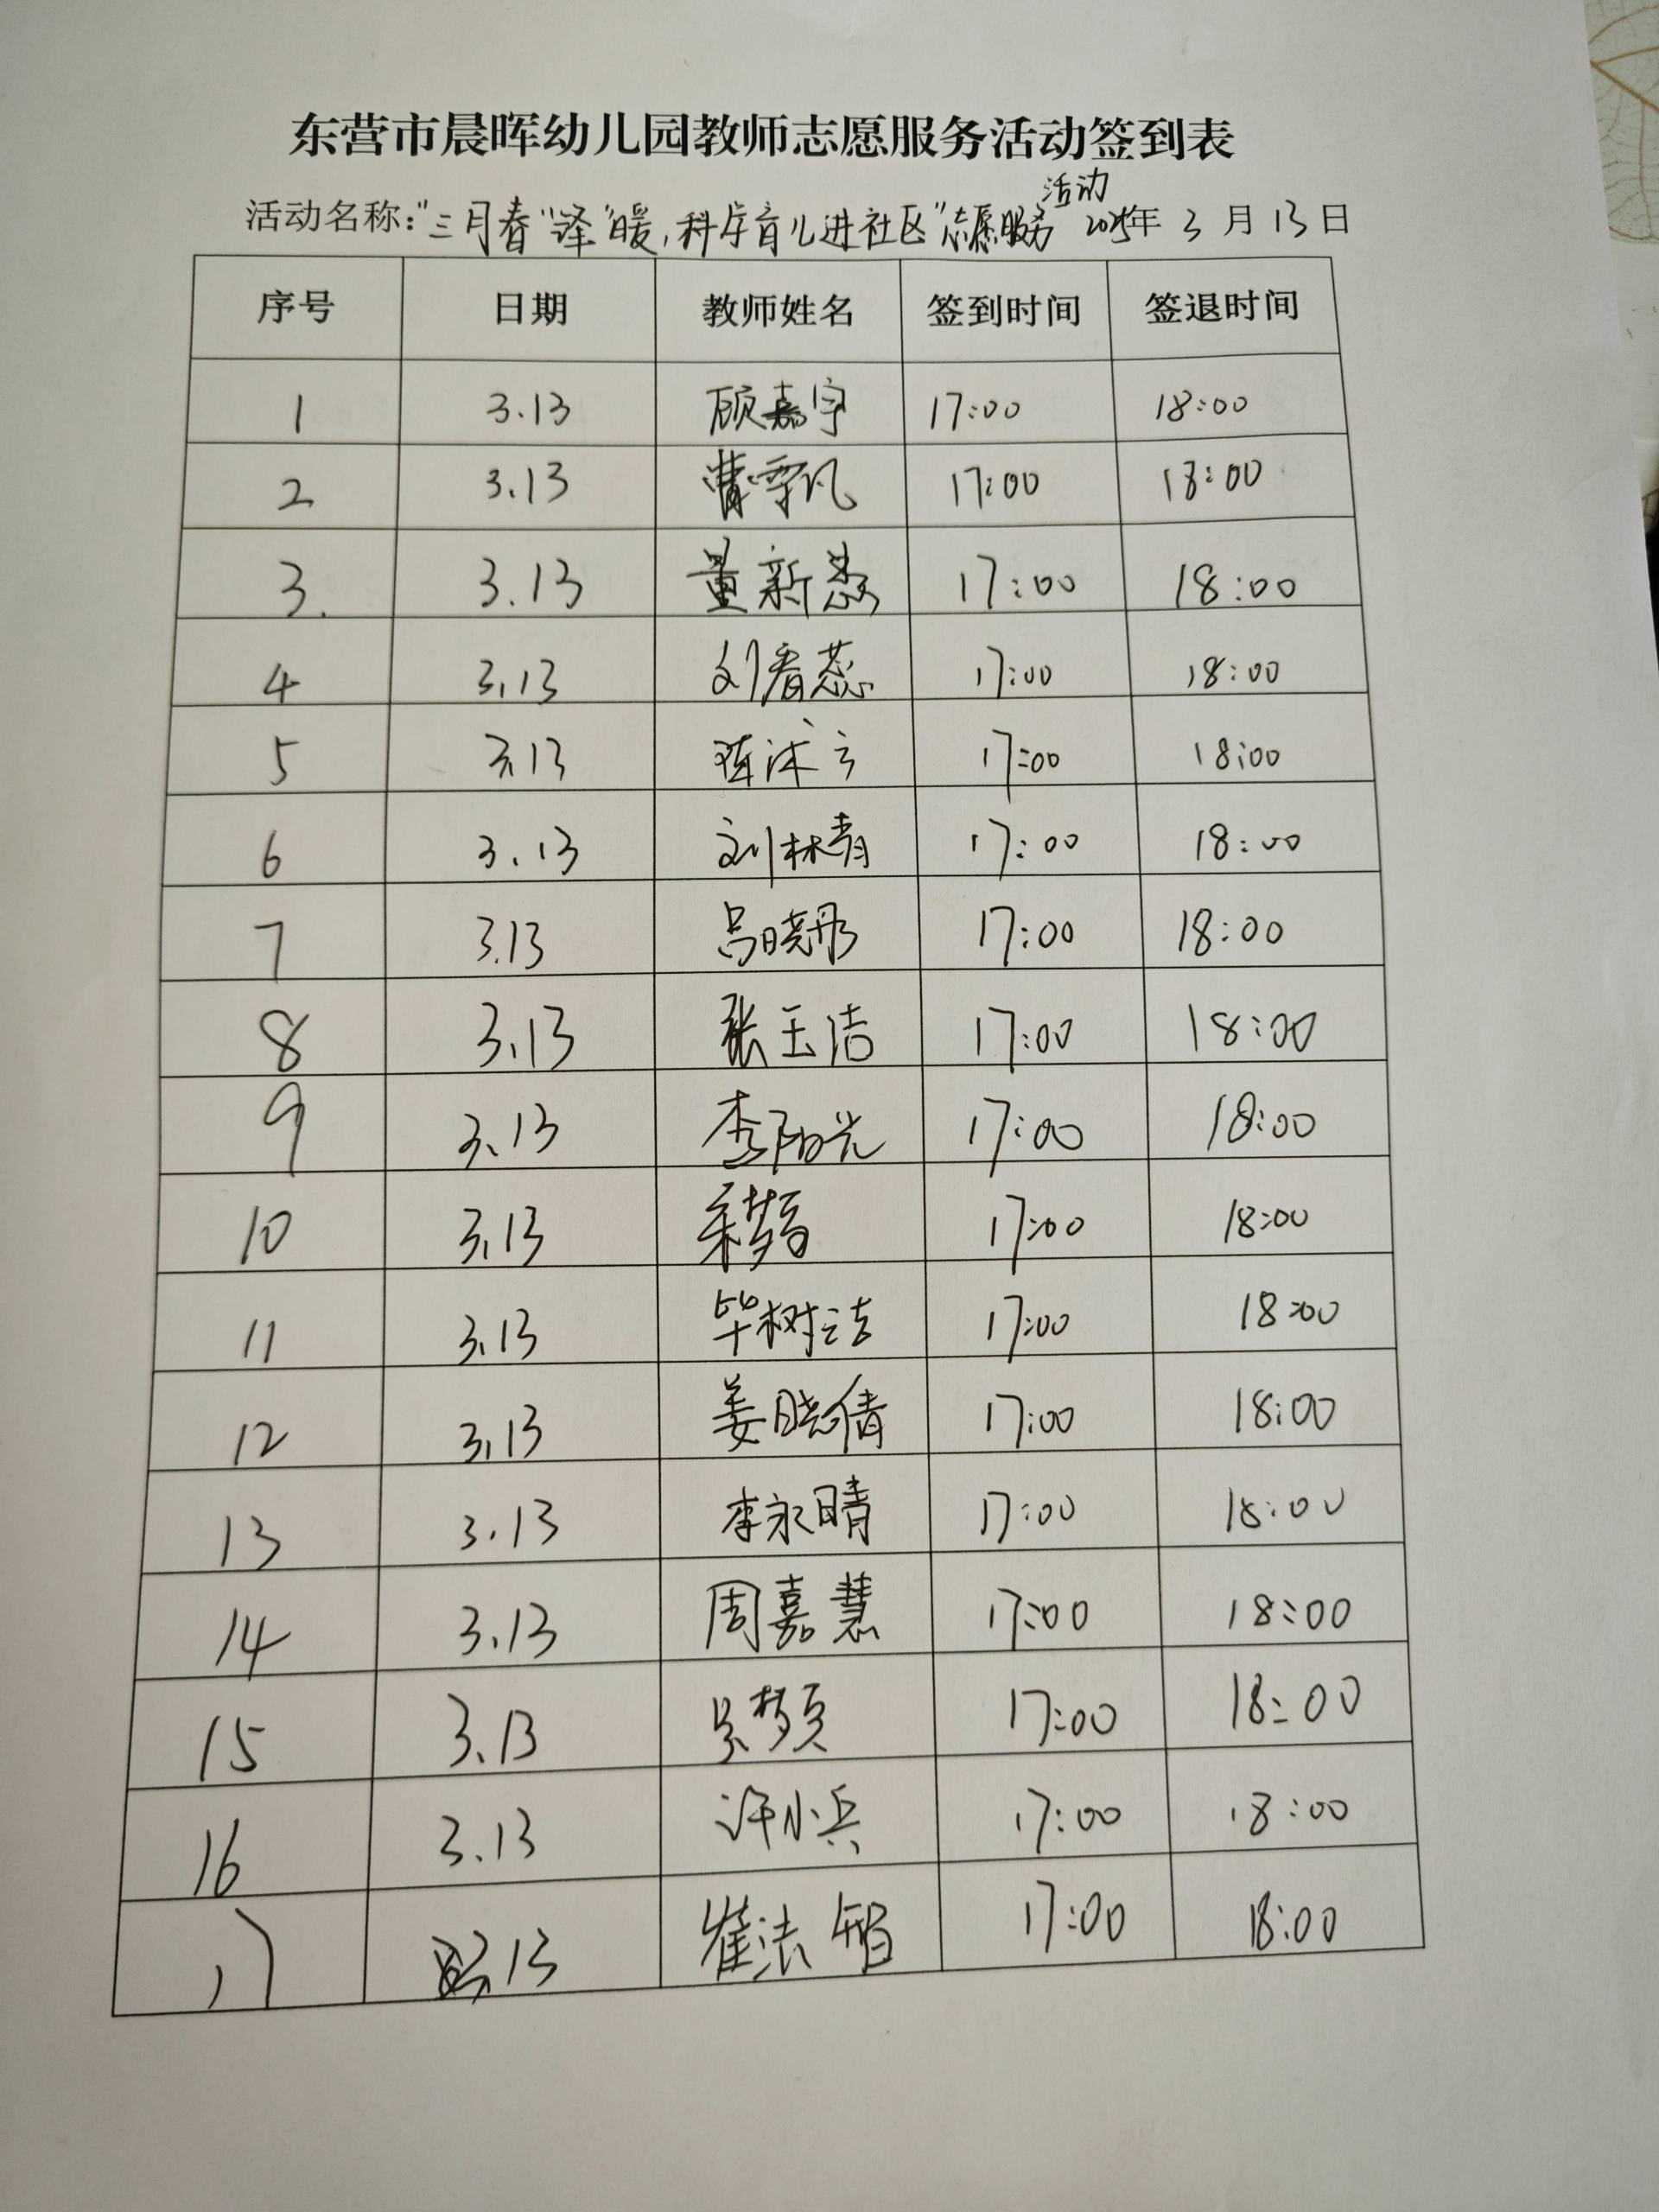 东营市晨晖幼儿园教师志愿服务活动签到表
活动
活动名称："三月春"泽"暖，科学育儿进社区"志愿服务 2025年 3 月 13 日
序号 日期 教师姓名 签到时间 签退时间
1 3.13 顾嘉宇 17:00 18:00
2 3.13 曹雪凡 17:00 18:00
3. 3.13 董新蕊 17:00 18:00
4 3.13 刘春蕊 17:00 18:00
5 3.13 17:00 18:00
6 3.13 刘林青 17:00 18:00
7 3.13 吕晓彤 17:00 18:00
8 3.13 张玉洁 17:00 18:00
9 3.13 李阳光 17:00 18:00
10 3.13 17:00 18:00
11 3.13 毕树洁 17:00 18:00
12 3.13 姜晓倩 17:00 18:00
13 3.13 李永晴 17:00 18:00
14 3.13 周嘉慧 17:00 18:00
15 3.13 17:00 18:00
16 3.13 许小兵 17:00 18:00
17 3.13 崔法智 17:00 18:00